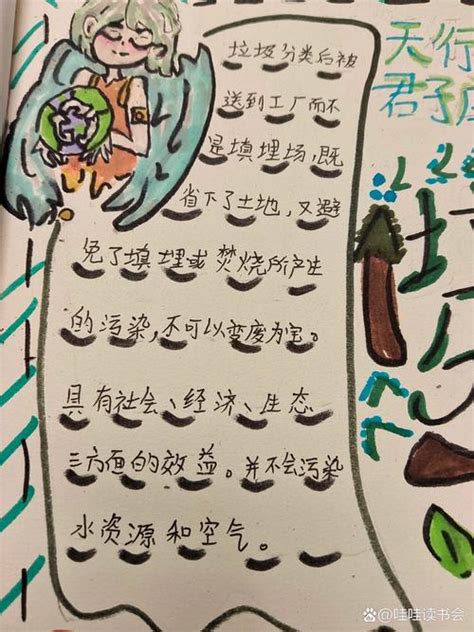 垃圾分类后被
送到工厂而不
是填埋场,既
省下了土地,又避
免了填埋或焚烧所产生
的污染,不可以变废为宝。
具有社会、经济、生态
三方面的效益。并不会污染
水资源和空气。
天行
君子
哇哇读书会